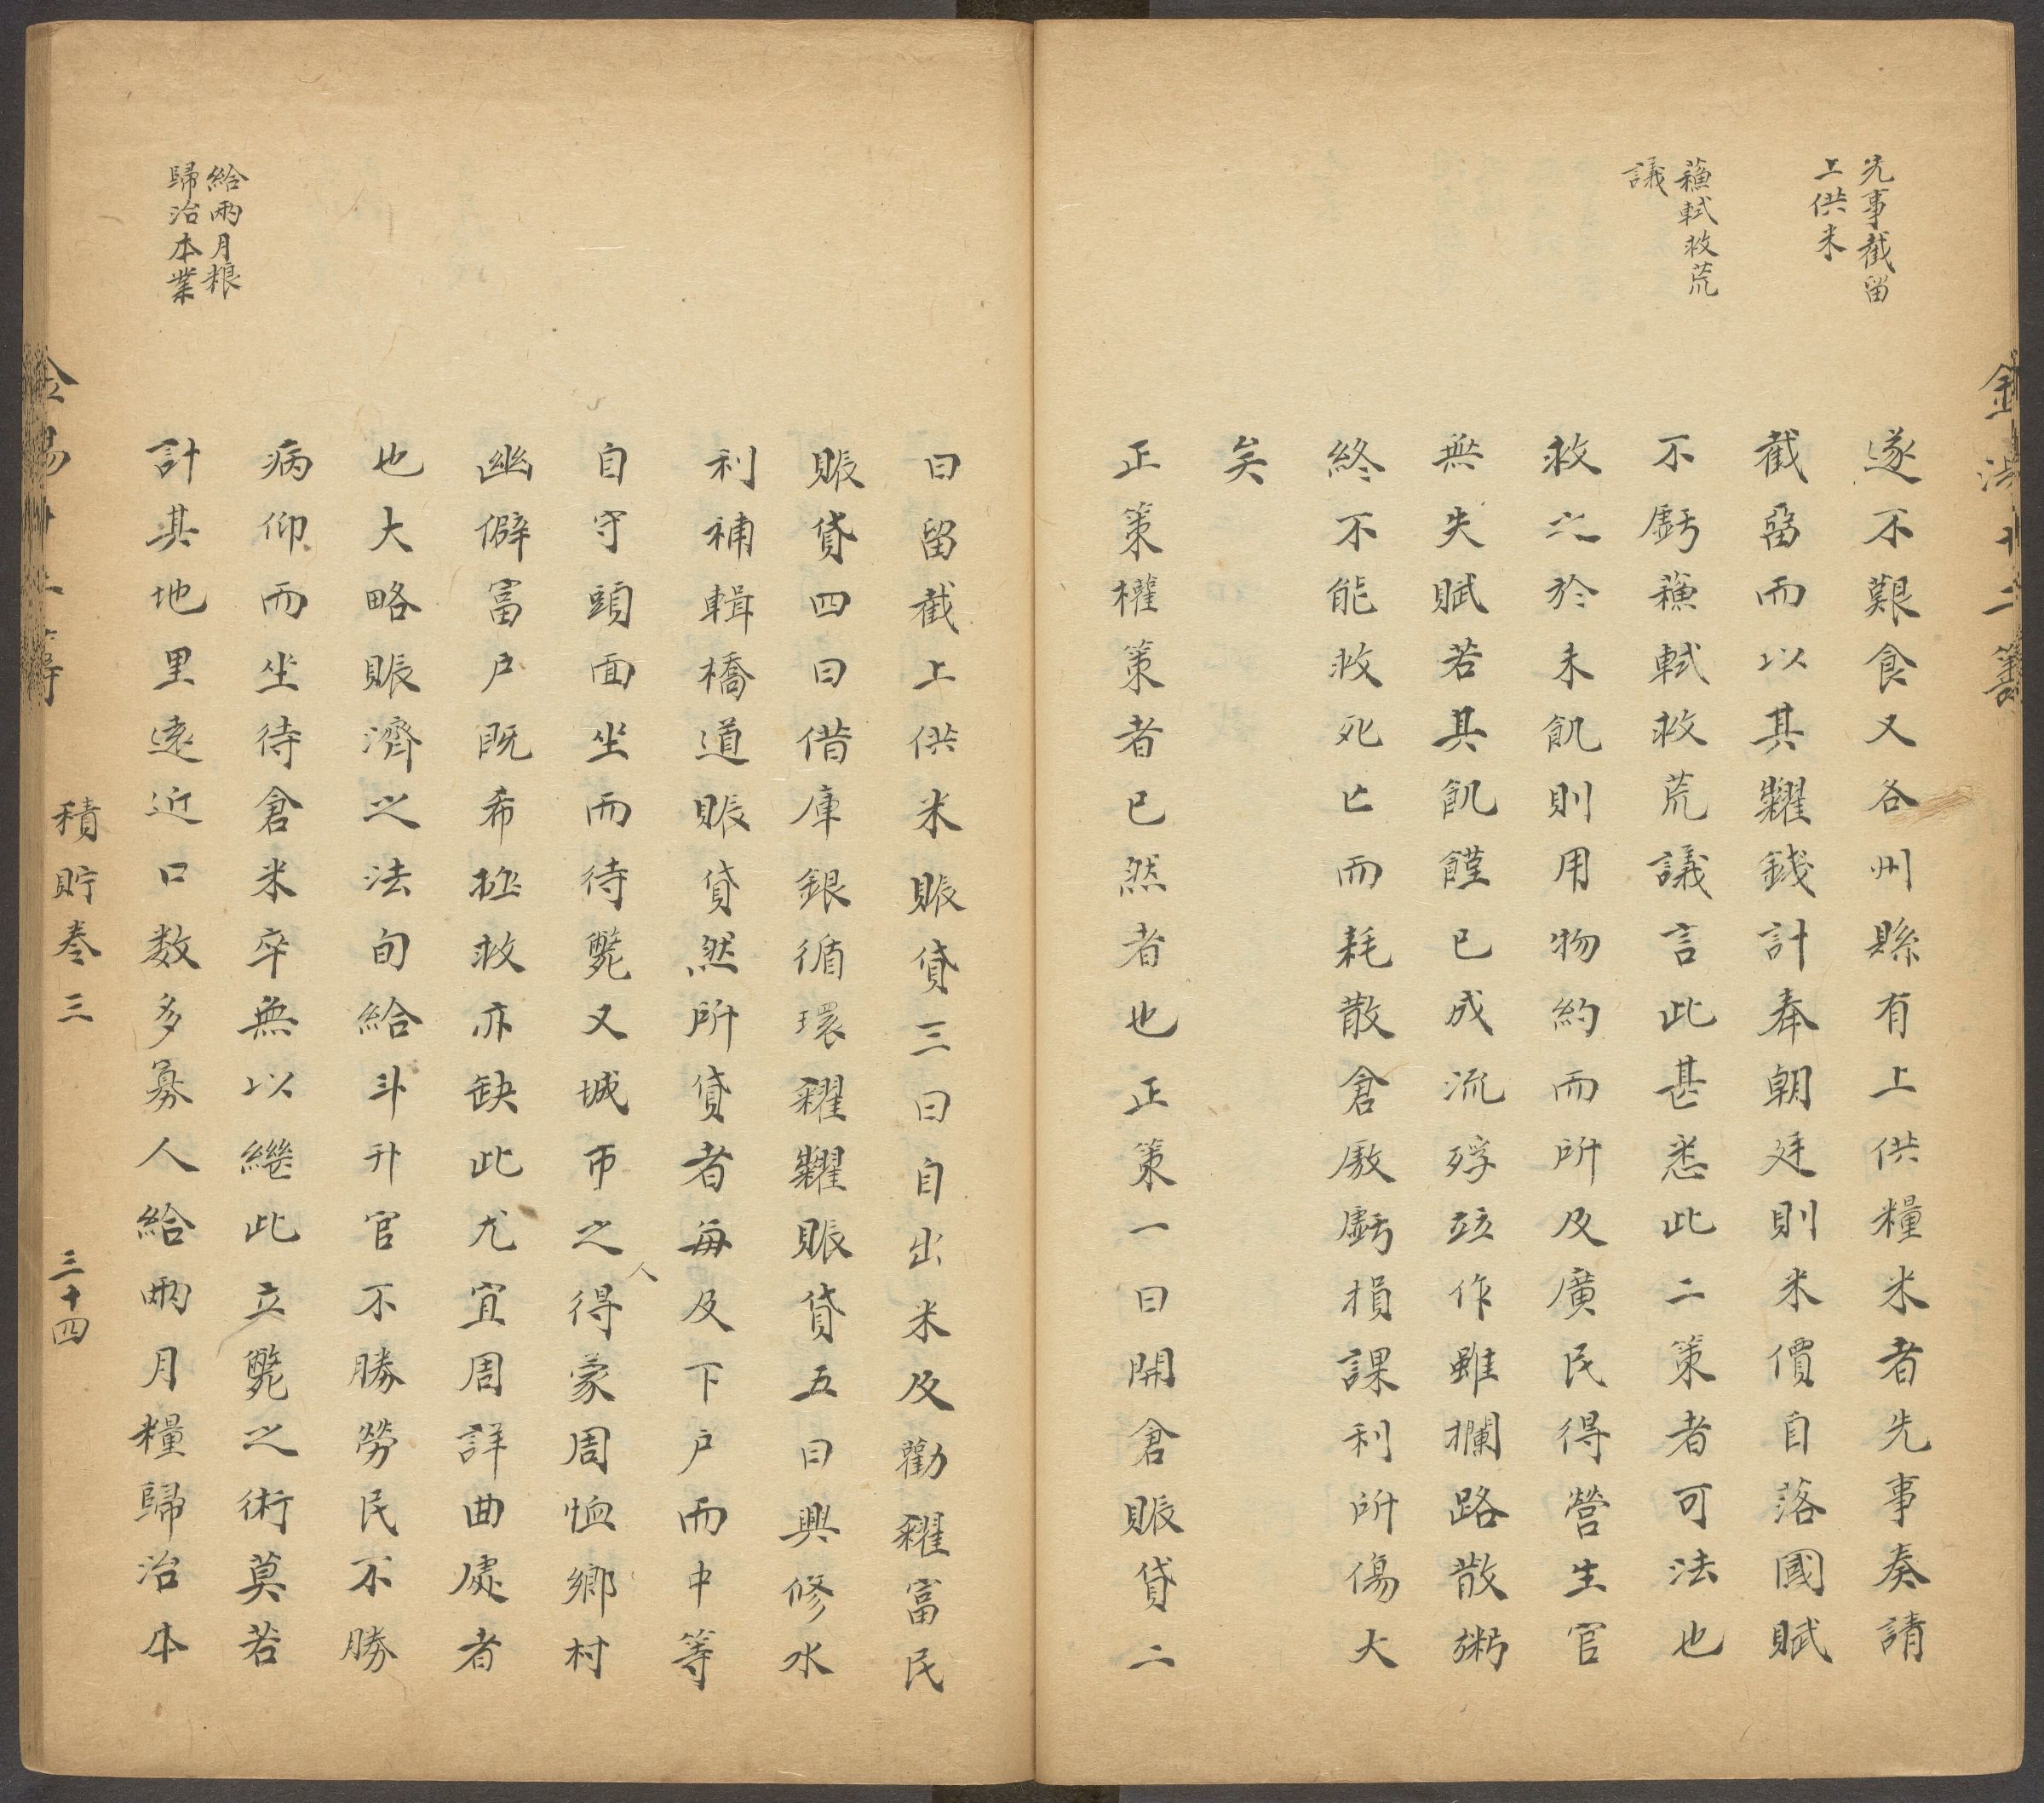 先事截留
上供米
蘓軾救荒
議
遂不艱食又各州縣有上供糧米者先事奏請
截留而以其糶錢計奉朝廷則米價自落國賦
不虧蘓軾救荒議言此甚悉此二策者可法也
救之於未飢則用物約而所及廣民得營生官
無失賦若其飢饉已成流殍竝作雖攔路散粥
終不能救死亡而耗散倉廒虧損課利所傷大
矣
正策權策者已然者也正策一曰開倉賑貸二
曰留截上供米賑貸三曰自出米及勸糴富民
賑貸四曰借庫銀循環糴糶賑貸五曰興修水
利補輯橋道賑貸然所貸者每及下户而中等
自守頭面坐而待斃又城市之人得蒙周恤鄉村
幽僻富户既希拯救亦缺此尤宜周詳曲處者
也大略賑濟之法旬給斗升官不勝勞民不勝
病仰而坐待倉米卒無以繼此立斃之術莫若
計其地里遠近口数多寡人給兩月糧歸治本
給兩月粮
歸治本業
積貯卷三
三十四